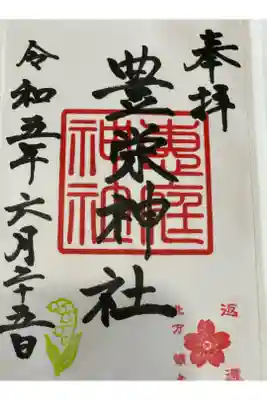 奉拝
豊栄神社
令和五年六月二十五日
恵庭
神社
北方